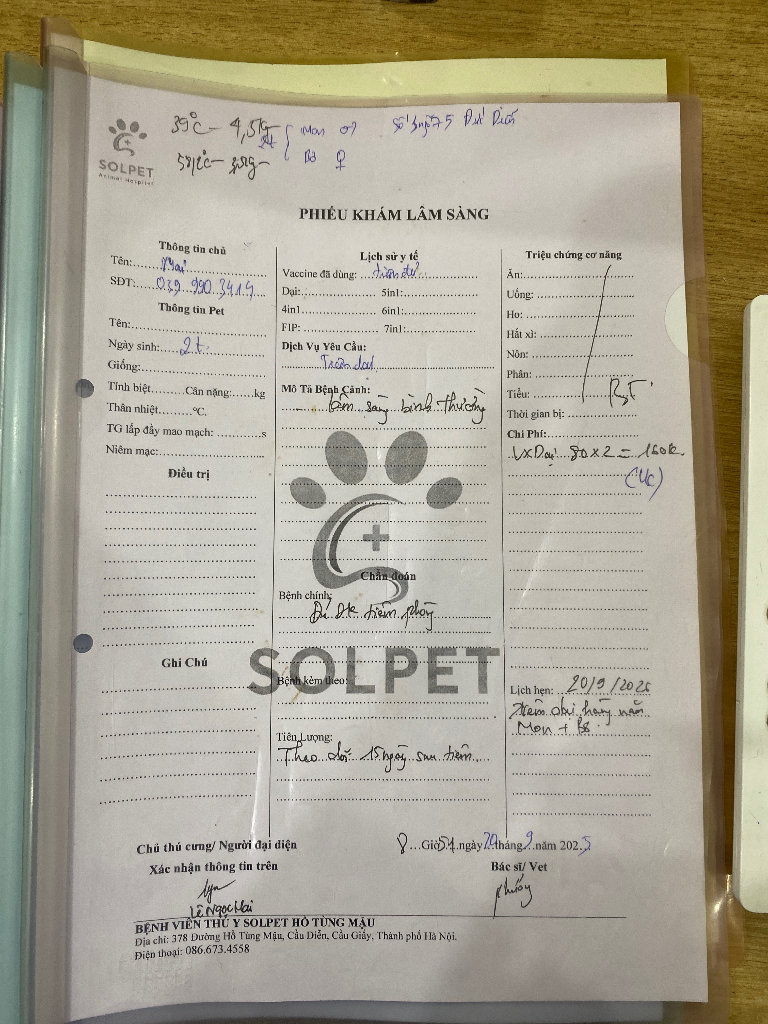 SOLPET
Animal Hospital
39°C - 4,5kg
2t
Mon ♂
Bơ ♀
PHIẾU KHÁM LÂM SÀNG
Thông tin chủ
Tên: Mai
SĐT: 039 990 3419
Thông tin Pet
Tên:
Ngày sinh: 2t
Giống:
Tính biệt Cân nặng: kg
Thân nhiệt °C.
TG lấp đầy mao mạch: s
Niêm mạc:
Điều trị
Ghi Chú
Lịch sử y tế
Vaccine đã dùng:
Dại: 5in1:
4in1 6in1:
FIP: 7in1:
Dịch Vụ Yêu Cầu:
Tiêm dại
Mô Tả Bệnh Cảnh:
Lâm sàng bình thường
Chẩn đoán
Bệnh chính:
Đủ đk tiêm phòng
SOLPET
Bệnh kèm theo:
Tiên Lượng:
Theo dõi 15 ngày sau tiêm
Triệu chứng cơ năng
Ăn:
Uống:
Ho:
Hắt xì:
Nôn:
Phân:
Tiểu: BT
Thời gian bị:
Chi Phí:
VxDại 80 x 2 = 160k
(ck)
Lịch hẹn: 20/9/2026
Tiêm dại hàng năm
Mon + Bơ
Chủ thú cưng/ Người đại diện
Xác nhận thông tin trên
Lê Ngọc Mai
8 Giờ 54 ngày 20 tháng 9 năm 2025
Bác sĩ/ Vet
BỆNH VIỆN THÚ Y SOLPET HỒ TÙNG MẬU
Địa chỉ: 378 Đường Hồ Tùng Mậu, Cầu Diễn, Cầu Giấy, Thành phố Hà Nội.
Điện thoại: 086.673.4558